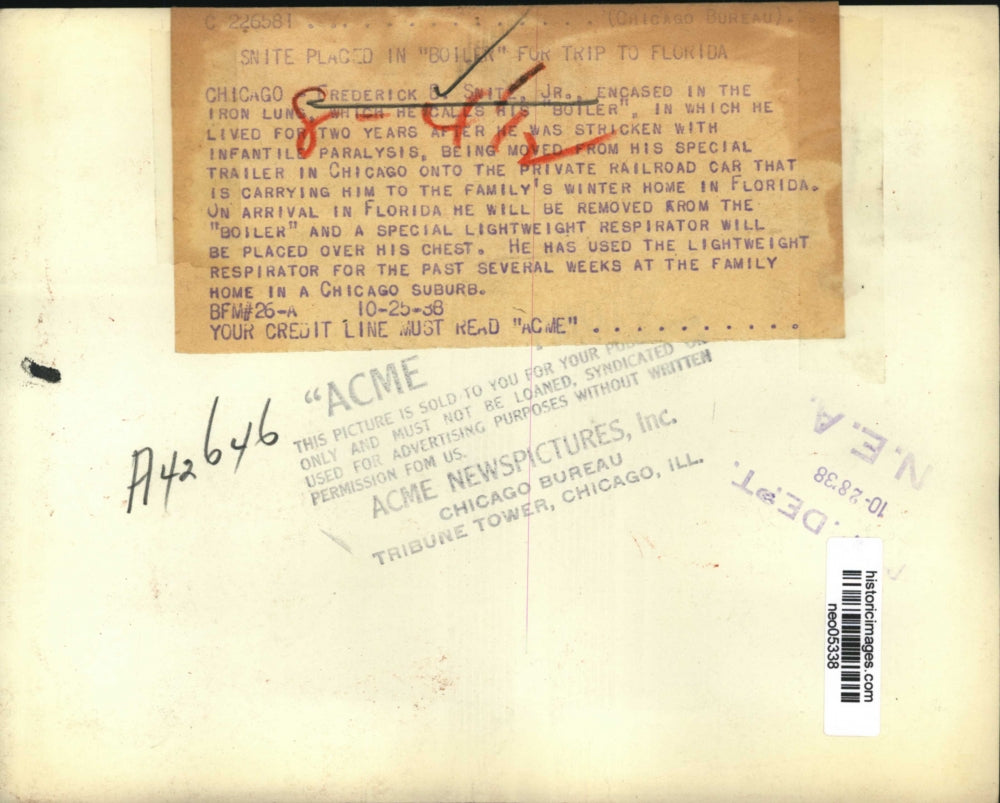 C 226581 . . . . . . . . . . . . . . . (CHICAGO BUREAU).
SNITE PLACED IN "BOILER" FOR TRIP TO FLORIDA
CHICAGO FREDERICK B. SNITE, JR., ENCASED IN THE
IRON LUNG, WHICH HE CALLS HIS "BOILER", IN WHICH HE
LIVED FOR TWO YEARS AFTER HE WAS STRICKEN WITH
INFANTILE PARALYSIS, BEING MOVED FROM HIS SPECIAL
TRAILER IN CHICAGO ONTO THE PRIVATE RAILROAD CAR THAT
IS CARRYING HIM TO THE FAMILY'S WINTER HOME IN FLORIDA.
ON ARRIVAL IN FLORIDA HE WILL BE REMOVED FROM THE
"BOILER" AND A SPECIAL LIGHTWEIGHT RESPIRATOR WILL
BE PLACED OVER HIS CHEST. HE HAS USED THE LIGHTWEIGHT
RESPIRATOR FOR THE PAST SEVERAL WEEKS AT THE FAMILY
HOME IN A CHICAGO SUBURB.
BFM#26-A 10-25-38
YOUR CREDIT LINE MUST READ "ACME" . . . . . . . . . . .
8-4½
A42646
"ACME
THIS PICTURE IS SOLD TO YOU FOR YOUR
ONLY AND MUST NOT BE LOANED, SYNDICATED
USED FOR ADVERTISING PURPOSES WITHOUT WRITTEN
PERMISSION FOM US.
ACME NEWSPICTURES, Inc.
CHICAGO BUREAU
TRIBUNE TOWER, CHICAGO, ILL.
N.E.A.
10-28'38
DEPT.
historicimages.com
neo05338